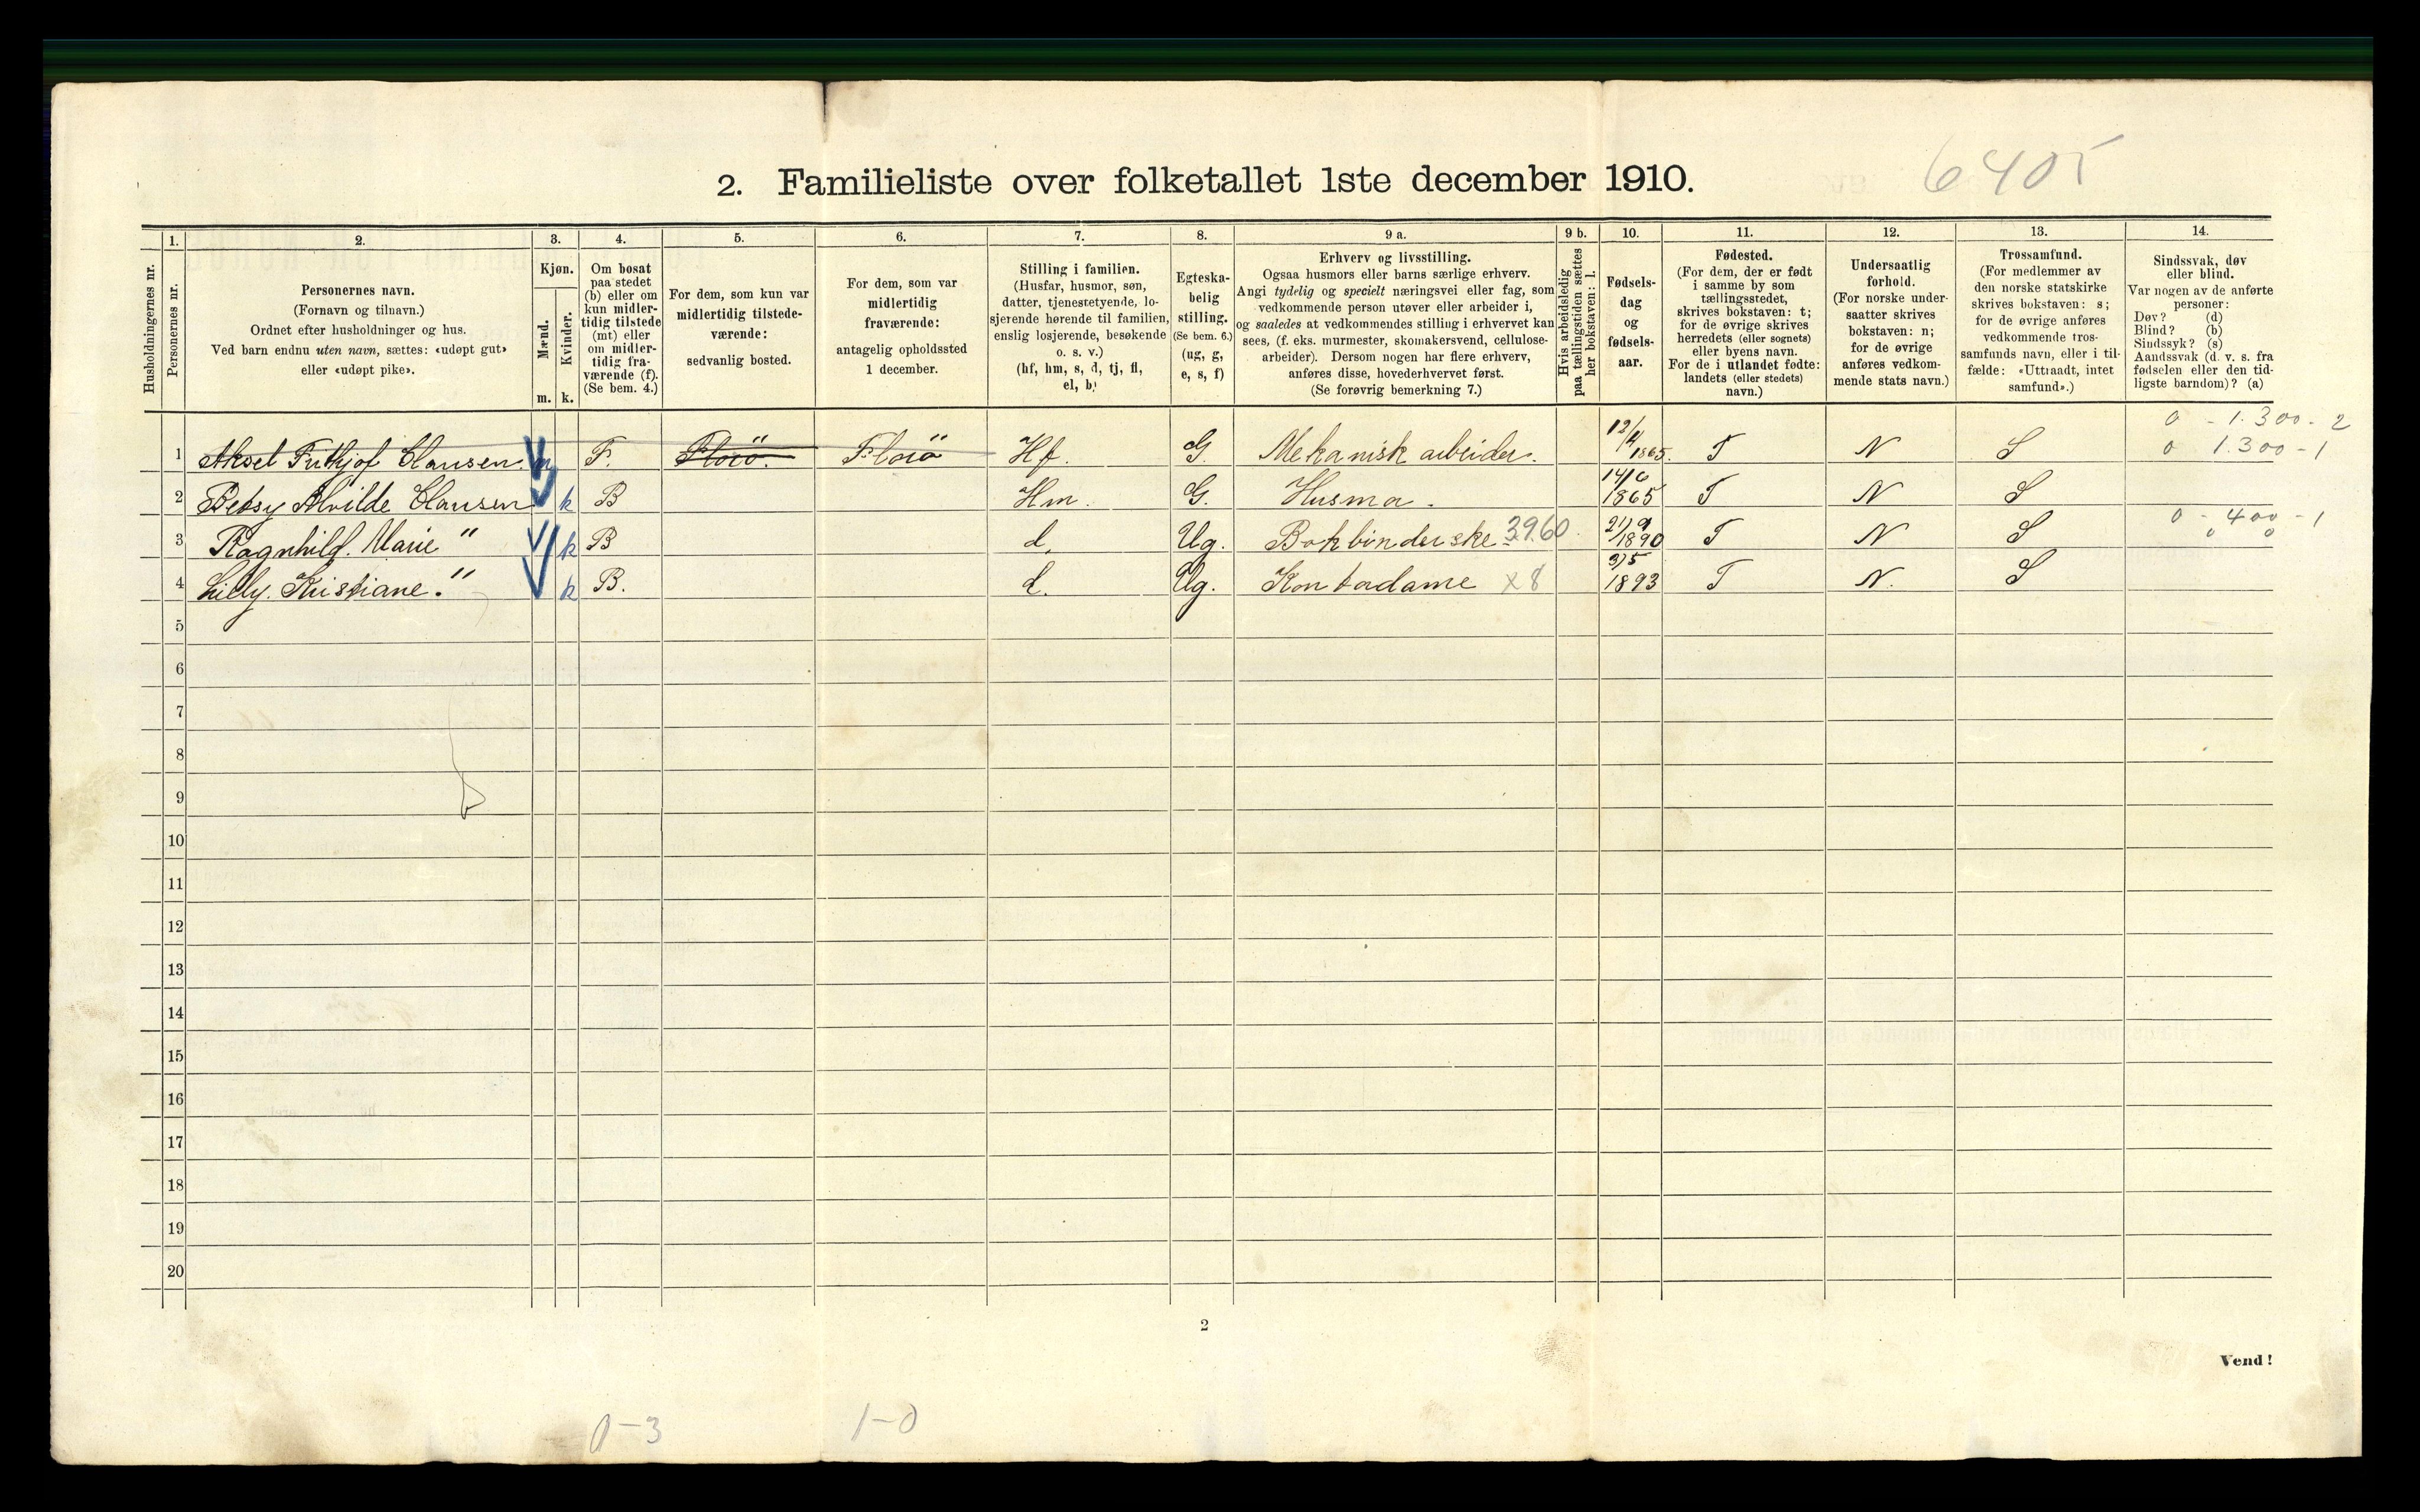 6405
2. Familieliste over folketallet 1ste december 1910.
Husholdningernes nr.
1. Personernes nr.
2. Personernes navn.
(Fornavn og tilnavn.)
Ordnet efter husholdninger og hus.
Ved barn endnu uten navn, sættes: «udøpt gut»
eller «udøpt pike».
3. Kjøn.
Mænd. Kvinder.
m. k.
4. Om bosat
paa stedet
(b) eller om
kun midler-
tidig tilstede
(mt) eller
om midler-
tidig fra-
værende (f).
(Se bem. 4.)
5. For dem, som kun var
midlertidig tilstede-
værende:
sedvanlig bosted.
6. For dem, som var
midlertidig
fraværende:
antagelig opholdssted
1 december.
7. Stilling i familien.
(Husfar, husmor, søn,
datter, tjenestetyende, lo-
sjerende hørende til familien,
enslig losjerende, besøkende
o. s. v.)
(hf, hm, s, d, tj, fl,
el, b)
8. Egteska-
belig
stilling.
(Se bem. 6.)
(ug, g,
e, s, f)
9 a. Erhverv og livsstilling.
Ogsaa husmors eller barns særlige erhverv.
Angi tydelig og specielt næringsvei eller fag, som
vedkommende person utøver eller arbeider i,
og saaledes at vedkommendes stilling i erhvervet kan
sees, (f. eks. murmester, skomakersvend, cellulose-
arbeider). Dersom nogen har flere erhverv,
anføres disse, hovederhvervet først.
(Se forøvrig bemerkning 7.)
9 b. Hvis arbeidsledig
paa tællingstiden sættes
her bokstaven: l.
10. Fødsels-
dag
og
fødsels-
aar.
11. Fødested.
(For dem, der er født
i samme by som
tællingsstedet,
skrives bokstaven: t;
for de øvrige skrives
herredets (eller sognets)
eller byens navn.
For de i utlandet fødte:
landets (eller stedets)
navn.)
12. Undersaatlig
forhold.
(For norske under-
saatter skrives
bokstaven: n;
for de øvrige
anføres vedkom-
mende stats navn.)
13. Trossamfund.
(For medlemmer av
den norske statskirke
skrives bokstaven: s;
for de øvrige anføres
vedkommende tros-
samfunds navn, eller i til-
fælde: «Uttraadt, intet
samfund».)
14. Sindssvak, døv
eller blind.
Var nogen av de anførte
personer:
Døv? (d)
Blind? (b)
Sindssyk? (s)
Aandssvak (d. v. s. fra
fødselen eller den tid-
ligste barndom)? (a)
0 - 1.300 - 2
1 Aksel Frithjof Clausen. m F. Florö. Florö Hf. G. Mekanisk arbeider. 12/4 1865. T N S 0 1.300 - 1
2 Betsy Alvilde Clausen k B Hm. G. Husmo. 14/6 1865 T N S
3 Ragnhild. Marie " k B d. Ug. Bokbinderske 3960 21/9 1890 T N S 0 - 400 - 1
0 0
4 Lilly. Kristiane. " k B. d. Ug. Kontordame x8 3/5 1893 T N. S
5
6
7
8
9
10
11
12
13
14
15
16
17
18
19
20
2
Vend!
0-3 1-0